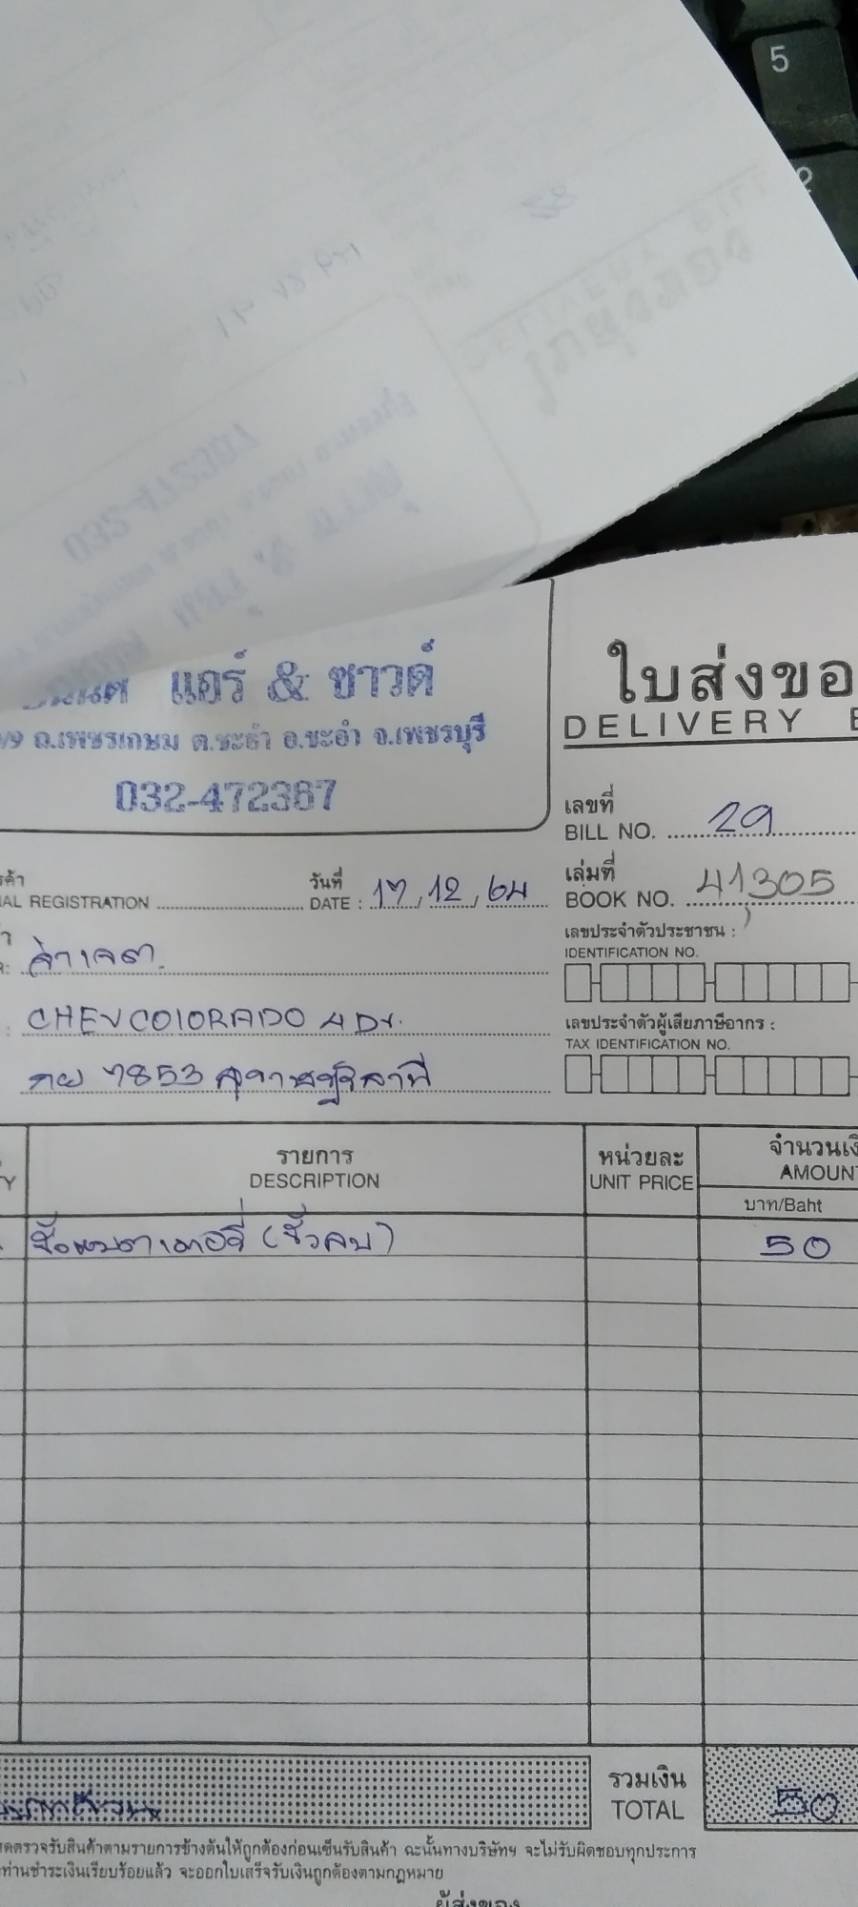 5
2
แอร์ & ซาวด์
ถ.เพชรเกษม ต.ชะอำ อ.ชะอำ จ.เพชรบุรี
032-472367
ใบส่งขอ
DELIVERY
เลขที่
BILL NO. 29
เล่มที่
BOOK NO. 41305
วันที่
REGISTRATION DATE : 17, 12, 64
เลขประจำตัวประชาชน :
IDENTIFICATION NO.
CHEV COLORADO 4 Dr.
เลขประจำตัวผู้เสียภาษีอากร :
TAX IDENTIFICATION NO.
7853 สุราษฎร์ธานี
รายการ
DESCRIPTION
หน่วยละ
UNIT PRICE
จำนวนเงิ
AMOUNT
บาท/Baht
ขั้วแบตเตอรี่ (ขั้วลบ) 50
รวมเงิน
TOTAL 50
ตรวจรับสินค้าตามรายการข้างต้นให้ถูกต้องก่อนเซ็นรับสินค้า ฉะนั้นทางบริษัทฯ จะไม่รับผิดชอบทุกประการ
ท่านชำระเงินเรียบร้อยแล้ว จะออกใบเสร็จรับเงินถูกต้องตามกฎหมาย
ผู้ส่งของ